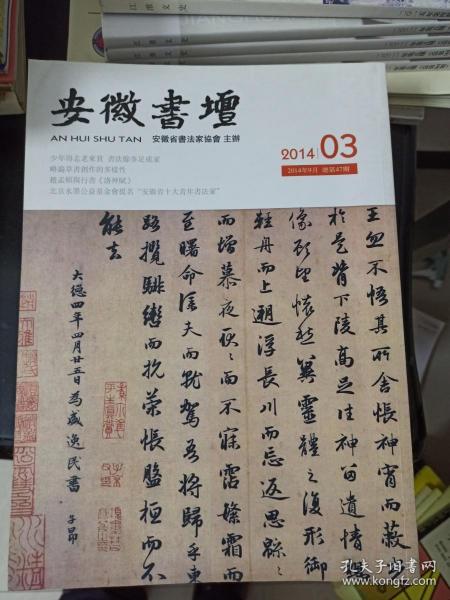 安徽書壇
AN HUI SHU TAN 安徽省書法家協會 主辦
2014 03
2014年9月 總第47期
少年得志老來貧 書法餘事足成家
略論草書創作的多樣性
趙孟頫與行書《洛神賦》
北京水墨公益基金會提名“安徽省十大青年書法家”
王忽不悟其所舍悵神宵而蔽
於是背下陵高足往神留遺情
像顧望懷愁冀靈體之復形御
輕舟而上遡浮長川而忘返思緜〻
而增慕夜耿〻而不寐霑繁霜而
至曙命僕夫而就駕吾將歸乎東
路攬騑轡而抗策悵盤桓而不
能去
大德四年四月廿五日為盛逸民書
子昂
孔夫子旧书网